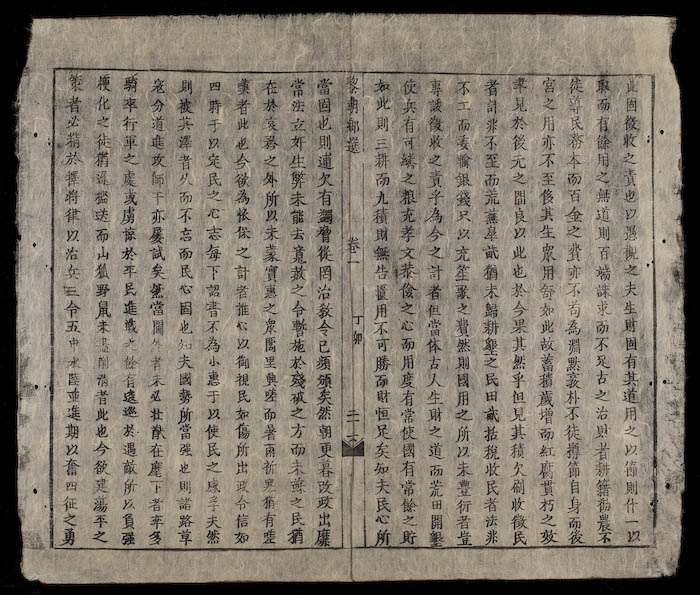 此固徵收之責也以愚觀之夫生財固有其道用之以儉則什一以
取而有餘用之無道則百端誅求而不足古之治財者耕籍勸農不
徒導民務本而百金之費亦不苟為淵默敦朴不徒撙節自身而後
宮之用亦不至侈其生眾用舒如此故蓄積歲增而紅腐貫朽之效
率見於後元之間良以此也於今果其然乎但見其積欠刷收徵民
者計非不至而荒蕪阜或猶未歸耕墾之民田或括稅收民者法非
不工而麦輸銀錢只以充笙歌之費然則國用之所以未豐衍者豈
專該徵收之責乎為今之計者但當体古人生財之道而荒田開墾
使兵有可續之粮充孝文恭儉之心而用度有常使國有常餘之貯
如此則三耕而九積財無告匱用不可勝而財恒足矣如夫民心所
黎朝鄉選 卷一 丁卯
當固也則逋欠有蠲曾從罔治教令已頻頒矣然朝更暮改政出靡
常法立奸生弊未能去寬赦之令暫施於殘破之方而未蘇之民猶
在於哀矜之外所以未蒙實惠之眾閭里興嗟而暑雨祈寒猶有嗟
嘆者此也今欲為懷保之計者推心以御視民如傷所出政令信如
四時于以定民之心志每下詔書不為小惠于以使民之感孚夫然
則被其澤者久而不忘而民心固也如夫國勢所當強也則諸路草
寇分道進攻師干亦屢試矣然當閫外者未必壯猷在麾下者率多
驕卒行軍之處或虜掠於平民進戰之餘有逡巡於遇敵所以負強
梗化之徒猶遲檻送而山狐野鼠未盡剷清者此也今欲建蕩平之
策者必精於擇將律以治兵三令五申水陸並進期以奮四征之勇